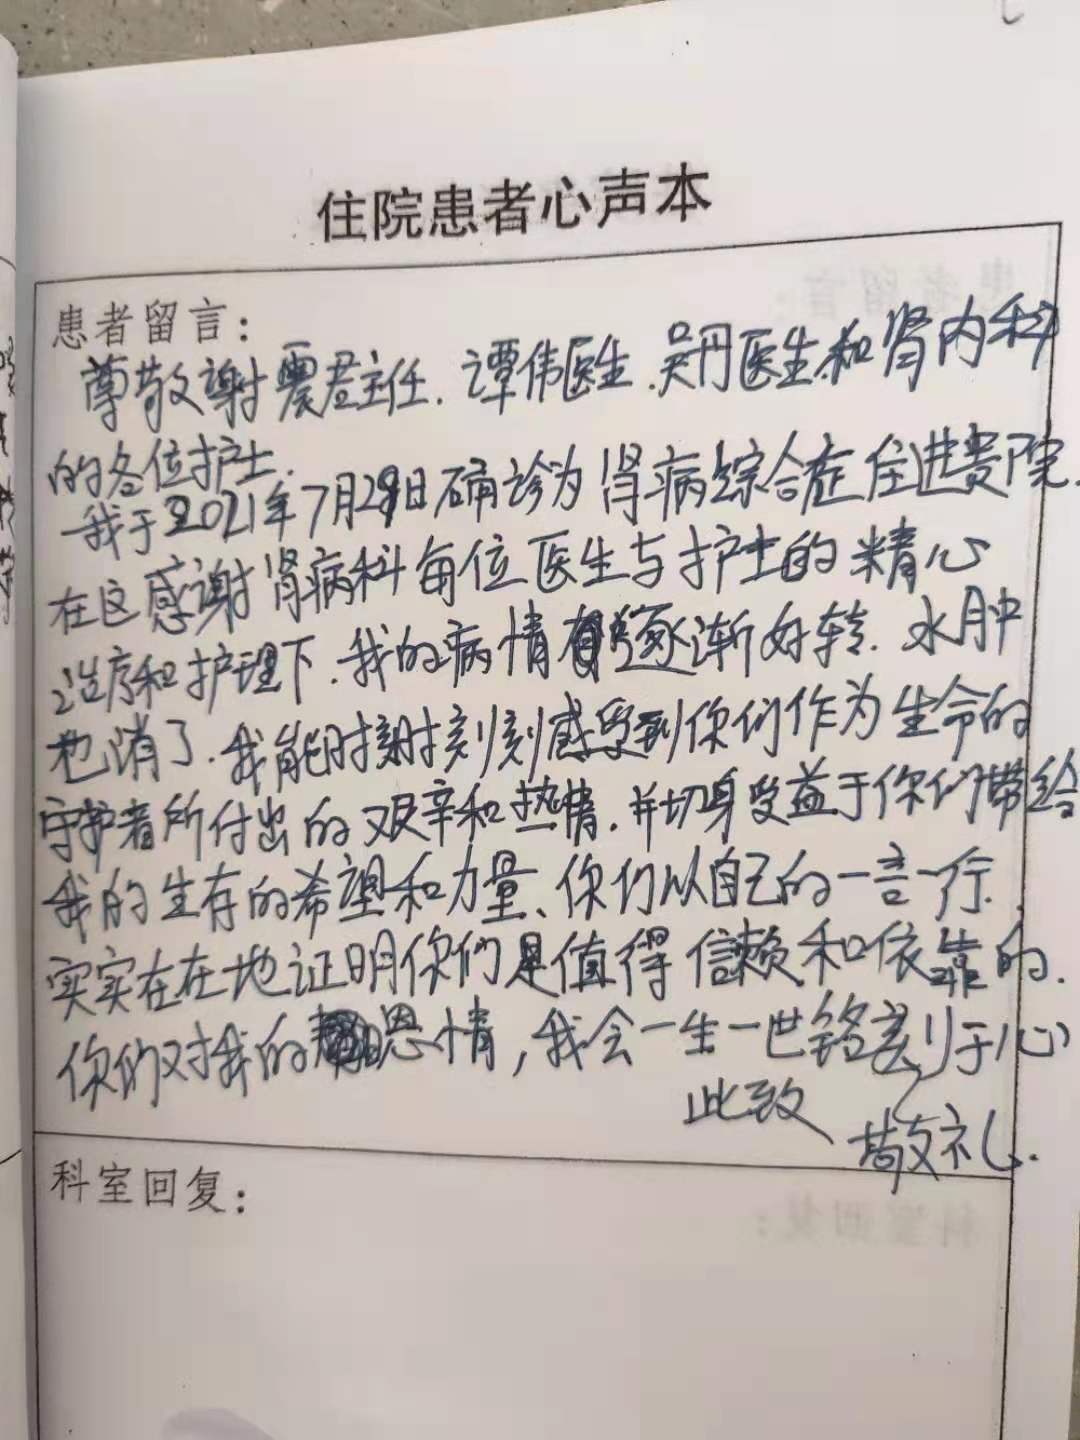 住院患者心声本
患者留言：
尊敬谢震君主任.谭伟医生.吴丹医生和肾内科
的各位护士.
我于2021年7月29日确诊为肾病综合症住进贵院.
在这感谢肾病科每位医生与护士的精心
和护理下.我的病情逐渐好转.水肿
也消了.我能时时刻刻感受到你们作为生命的
守护者所付出的艰辛和热情.并切身受益于你们带给
我的生存的希望和力量、你们以自己的一言一行.
实实在在地证明你们是值得信赖和依靠的.
你们对我的恩情，我会一生一世铭刻于心
此致
敬礼.
科室回复：